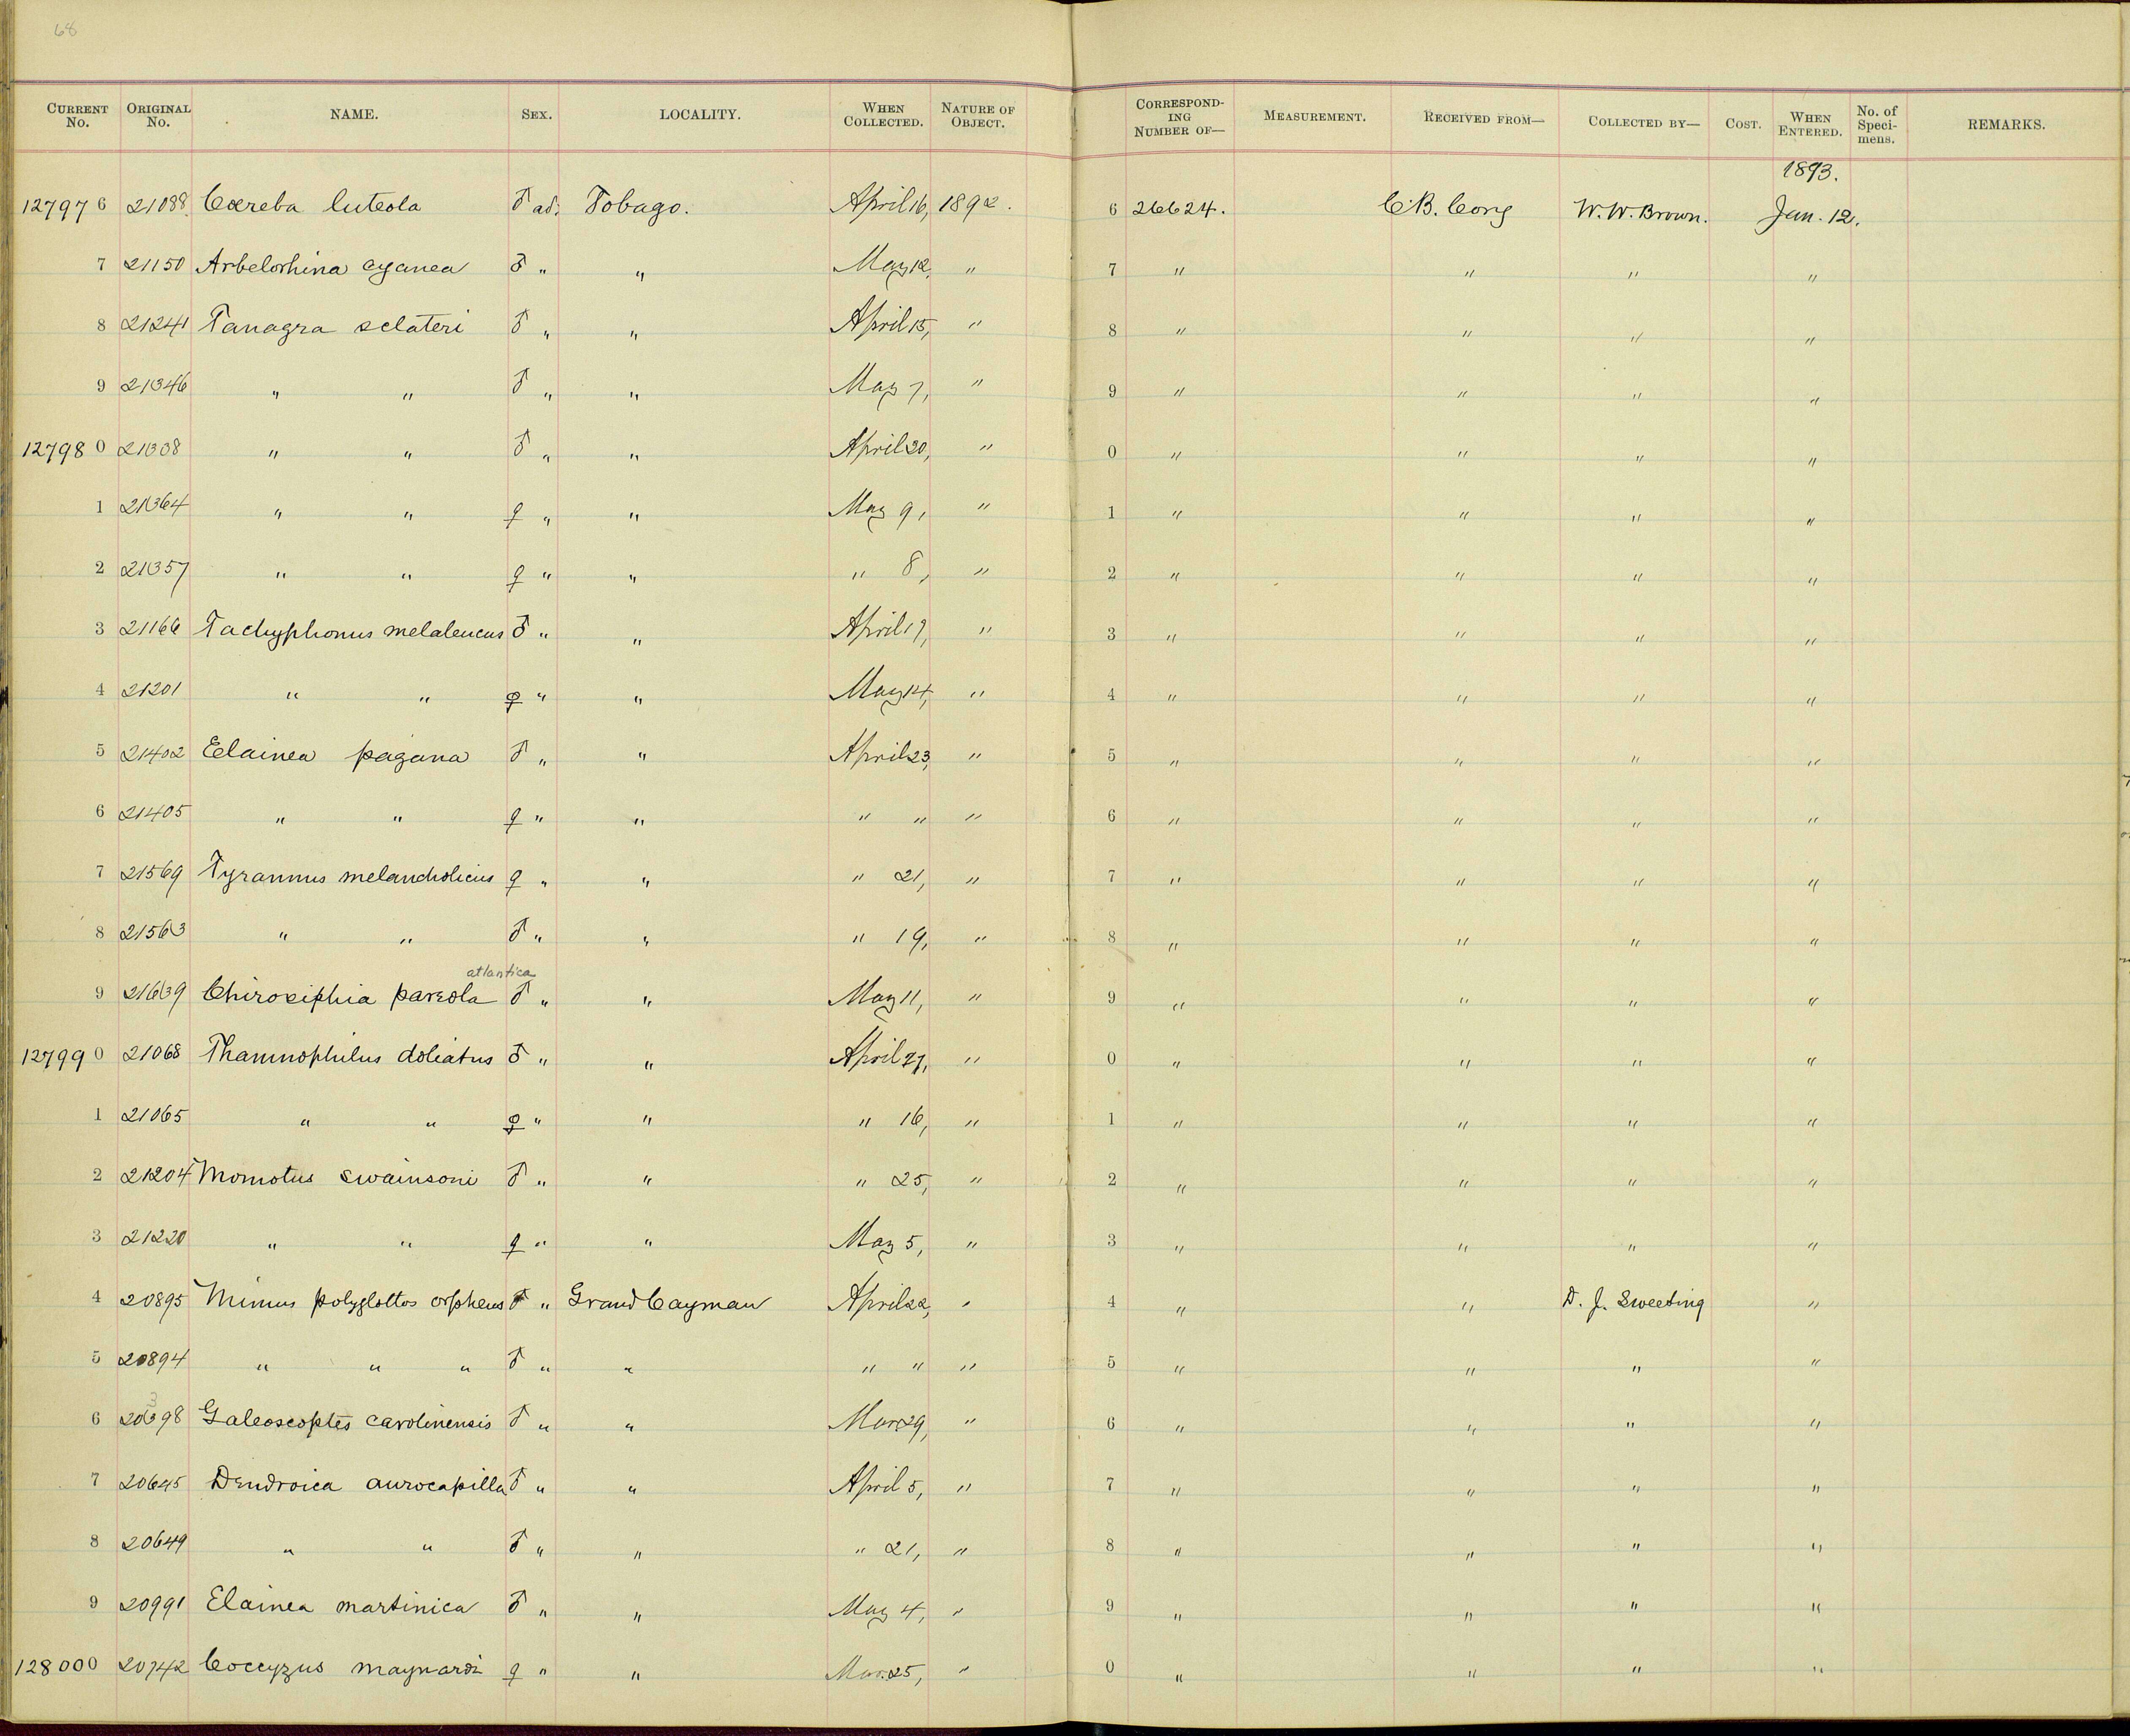 68
CURRENT No. ORIGINAL No. NAME. SEX. LOCALITY. WHEN COLLECTED. NATURE OF OBJECT. CORRESPONDING NUMBER OF— MEASUREMENT. RECEIVED FROM— COLLECTED BY— COST. WHEN ENTERED. No. of Specimens. REMARKS.
1893.
12797 6 21088 Cœreba luteola ♂ ad. Tobago. April 16, 1892. 6 26624. C.B. Cory W.W. Brown. Jan. 12.
7 21150 Arbelorhina cyanea ♂ " " May 12, " 7 " " " "
8 21241 Tanagra sclateri ♂ " " April 15, " 8 " " " "
9 21346 " " ♂ " " May 7, " 9 " " " "
12798 0 21308 " " ♂ " " April 20, " 0 " " " "
1 21364 " " ♀ " " May 9, " 1 " " " "
2 21357 " " ♀ " " " 8, " 2 " " " "
3 21166 Tachyphonus melaleucus ♂ " " April 19, " 3 " " " "
4 21201 " " ♀ " " May 14, " 4 " " " "
5 21402 Elainea pagana ♂ " " April 23, " 5 " " " "
6 21405 " " ♀ " " " " " 6 " " " "
7 21569 Tyrannus melancholicus ♀ " " " 21, " 7 " " " "
8 21563 " " ♂ " " " 19, " 8 " " " "
atlantica
9 21639 Chiroxiphia pareola ♂ " " May 11, " 9 " " " "
12799 0 21068 Thamnophilus doliatus ♂ " " April 27, " 0 " " " "
1 21065 " " ♀ " " " 16, " 1 " " " "
2 21204 Momotus swainsoni ♂ " " " 25, " 2 " " " "
3 21220 " " ♀ " " May 5, " 3 " " " "
4 20895 Mimus polyglottos orpheus ♂ " Grand Cayman April 22, " 4 " " D. J. Sweeting "
5 20894 " " " ♂ " " " " " 5 " " " "
3
6 20398 Galeoscoptes carolinensis ♂ " " Mar. 29, " 6 " " " "
7 20645 Dendroica aurocapilla ♂ " " April 5, " 7 " " " "
8 20649 " " ♂ " " " 21, " 8 " " " "
9 20991 Elainea martinica ♂ " " May 4, " 9 " " " "
12800 0 20742 Coccyzus maynardi ♀ " " Mar. 25, " 0 " " " "